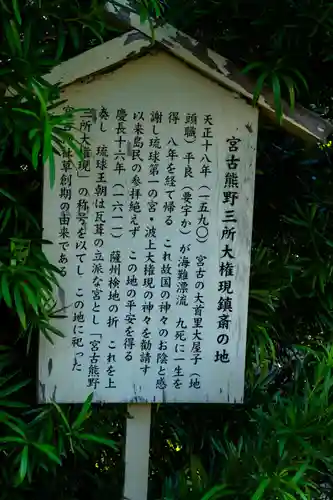 宮古熊野三所大権現鎮斎の地
天正十八年（一五九〇） 宮古の大首里大屋子（地
頭職）平良（要字か）が海難漂流 九死に一生を
得 八年を経て帰る これ故国の神々のお陰と感
謝し琉球第一の宮・波上大権現の神々を勧請す
以来島民の参拝絶えず この地の平安を得る
慶長十六年（一六一一） 薩州検地の折 これを上
奏し 琉球王朝は瓦葺の立派な宮とし「宮古熊野
三所大権現」の称号を以てし この地に祀った
宮古 社草創期の由来である